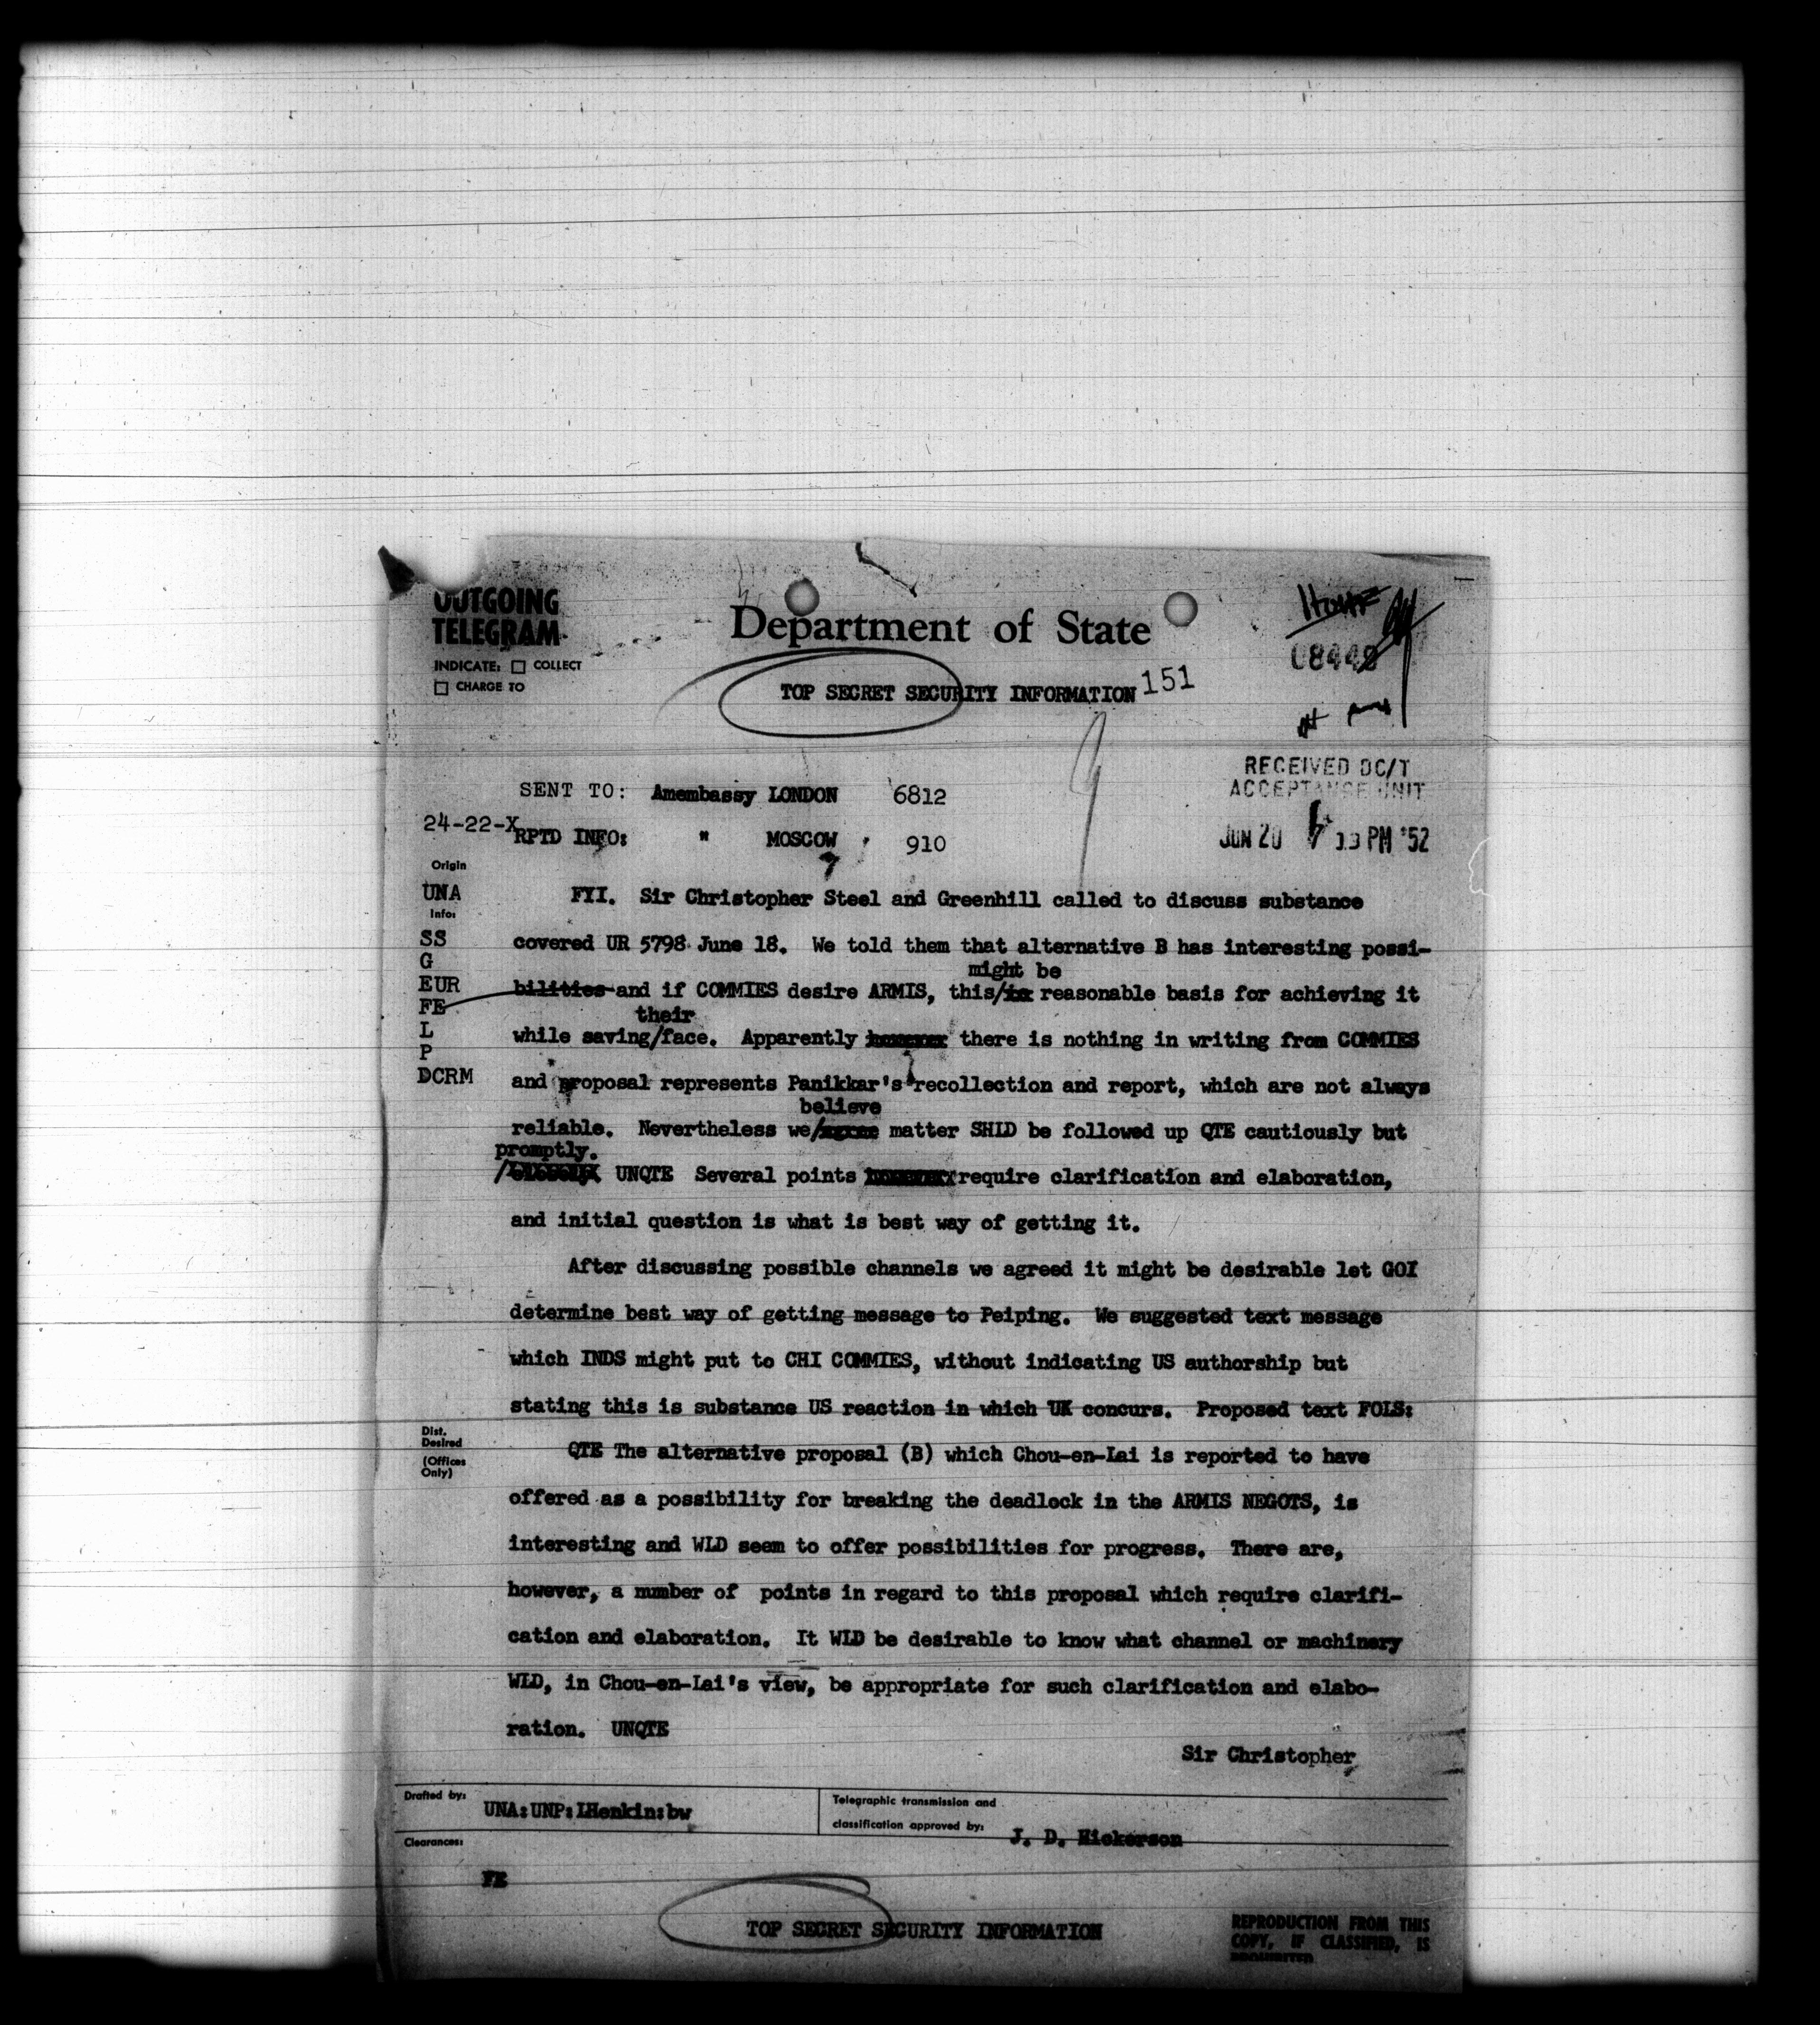 OUTGOING
TELEGRAM
INDICATE: ☐ COLLECT
☐ CHARGE TO
Department of State
TOP SECRET SECURITY INFORMATION 151
RECEIVED DC/T
ACCEPTANCE UNIT
JUN 20 PM '52
SENT TO: Amembassy LONDON 6812
24-22-X
RPTD INFO: " MOSCOW 910
Origin
UNA
Info:
SS
G
EUR
FE
L
P
DCRM
FYI. Sir Christopher Steel and Greenhill called to discuss substance
covered UR 5798 June 18. We told them that alternative B has interesting possi-
might be
bilities and if COMMIES desire ARMIS, this/is reasonable basis for achieving it
their
while saving/face. Apparently however there is nothing in writing from COMMIES
and proposal represents Panikkar's recollection and report, which are not always
believe
reliable. Nevertheless we/agree matter SHLD be followed up QTE cautiously but
promptly.
/ UNQTE Several points however require clarification and elaboration,
and initial question is what is best way of getting it.
After discussing possible channels we agreed it might be desirable let GOI
determine best way of getting message to Peiping. We suggested text message
which INDS might put to CHI COMMIES, without indicating US authorship but
stating this is substance US reaction in which UK concurs. Proposed text FOLS:
Dist.
Desired
(Offices
Only)
QTE The alternative proposal (B) which Chou-en-Lai is reported to have
offered as a possibility for breaking the deadlock in the ARMIS NEGOTS, is
interesting and WLD seem to offer possibilities for progress. There are,
however, a number of points in regard to this proposal which require clarifi-
cation and elaboration. It WLD be desirable to know what channel or machinery
WLD, in Chou-en-Lai's view, be appropriate for such clarification and elabo-
ration. UNQTE
Sir Christopher
Drafted by:
UNA:UNP:LHenkin:bw
Telegraphic transmission and
classification approved by:
J. D. Hickerson
Clearances:
FE
TOP SECRET SECURITY INFORMATION
REPRODUCTION FROM THIS
COPY, IF CLASSIFIED, IS
PROHIBITED